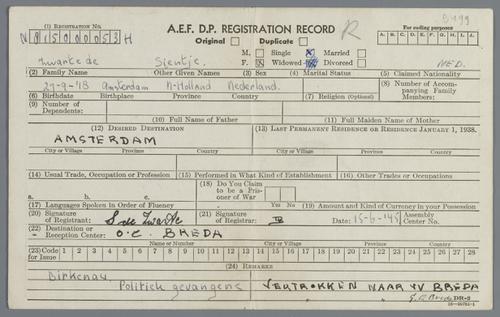 A.E.F. D.P. REGISTRATION RECORD
R
(1) REGISTRATION NO.
N 8 1 5 0 0 0 0 5 3 H
Original Duplicate
For coding purposes
A. B. C. D. E. F. G. H. I. J.
M. Single Married
F. Widowed Divorced
Zwarte de Sientje. NED.
(2) Family Name Other Given Names (3) Sex (4) Marital Status (5) Claimed Nationality
27-9-'18 Amsterdam N-Holland Nederland.
(6) Birthdate Birthplace Province Country (7) Religion (Optional) (8) Number of Accompanying Family Members:
(9) Number of Dependents:
(10) Full Name of Father (11) Full Maiden Name of Mother
(12) DESIRED DESTINATION (13) LAST PERMANENT RESIDENCE OR RESIDENCE JANUARY 1, 1938.
AMSTERDAM
City or Village Province Country City or Village Province Country
(14) Usual Trade, Occupation or Profession (15) Performed in What Kind of Establishment (16) Other Trades or Occupations
a. b. c.
(18) Do You Claim to be a Prisoner of War
Yes No
(17) Languages Spoken in Order of Fluency (19) Amount and Kind of Currency in your Possession
(20) Signature of Registrant: S de Zwarte (21) Signature of Registrar: Date: 15-6-'45 Assembly Center No.
(22) Destination or Reception Center: O.C. BREDA
Name or Number City or Village Province Country
(23) Code for Issue 1 2 3 4 5 6 7 8 9 10 11 12 13 14 15 16 17 18 19 20 21 22 23 24 25 26 27 28
(24) REMARKS
Birkenau
Politiek gevangene VERTROKKEN NAAR BREDA
DR-2